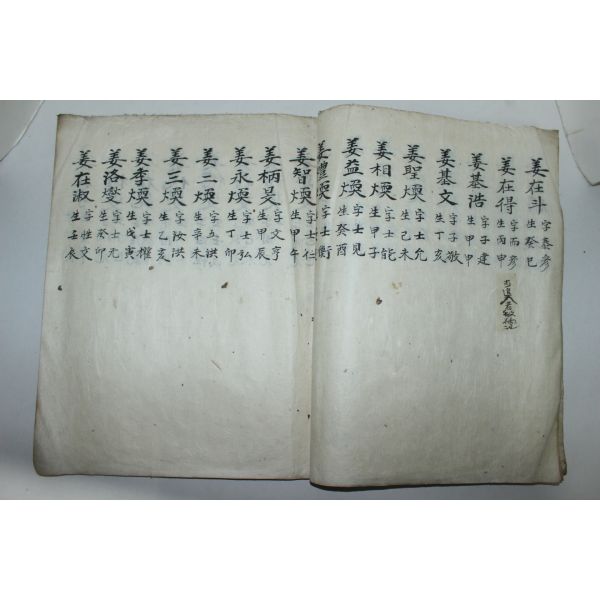 姜在斗 字泰彦 生癸巳
姜在得 字而彦 生丙申
姜基浩 字子建 生甲申
姜基文 字子敬 生丁亥
姜聖煥 字士允 生己未
姜相煥 字士能 生甲子
姜益煥 字士見 生癸酉
姜禮煥 字士衡
姜智煥 字士仁 生甲午
姜柄旲 字文亨 生甲辰
姜永煥 字士弘 生丁卯
姜二煥 字五洪 生辛未
姜三煥 字汝洪 生乙亥
姜季煥 字士權 生戊寅
姜洛燮 字士元 生癸卯
姜在淑 字性文 生壬辰